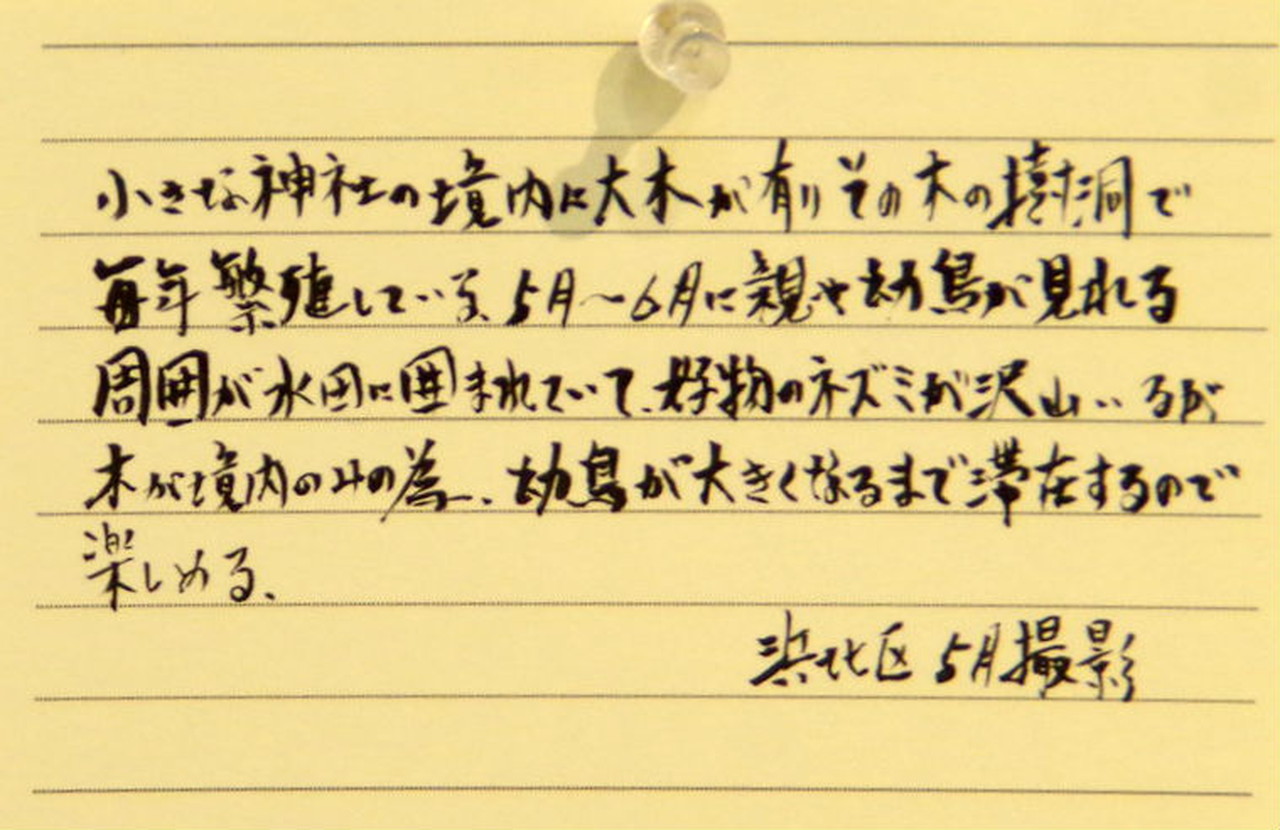 小さな神社の境内に大木が有りその木の樹洞で
毎年繁殖している、5月〜6月に親や幼鳥が見れる
周囲が水田に囲まれていて、好物のネズミが沢山いるが
木が境内のみの為、幼鳥が大きくなるまで滞在するので
楽しめる、
浜北区 5月撮影